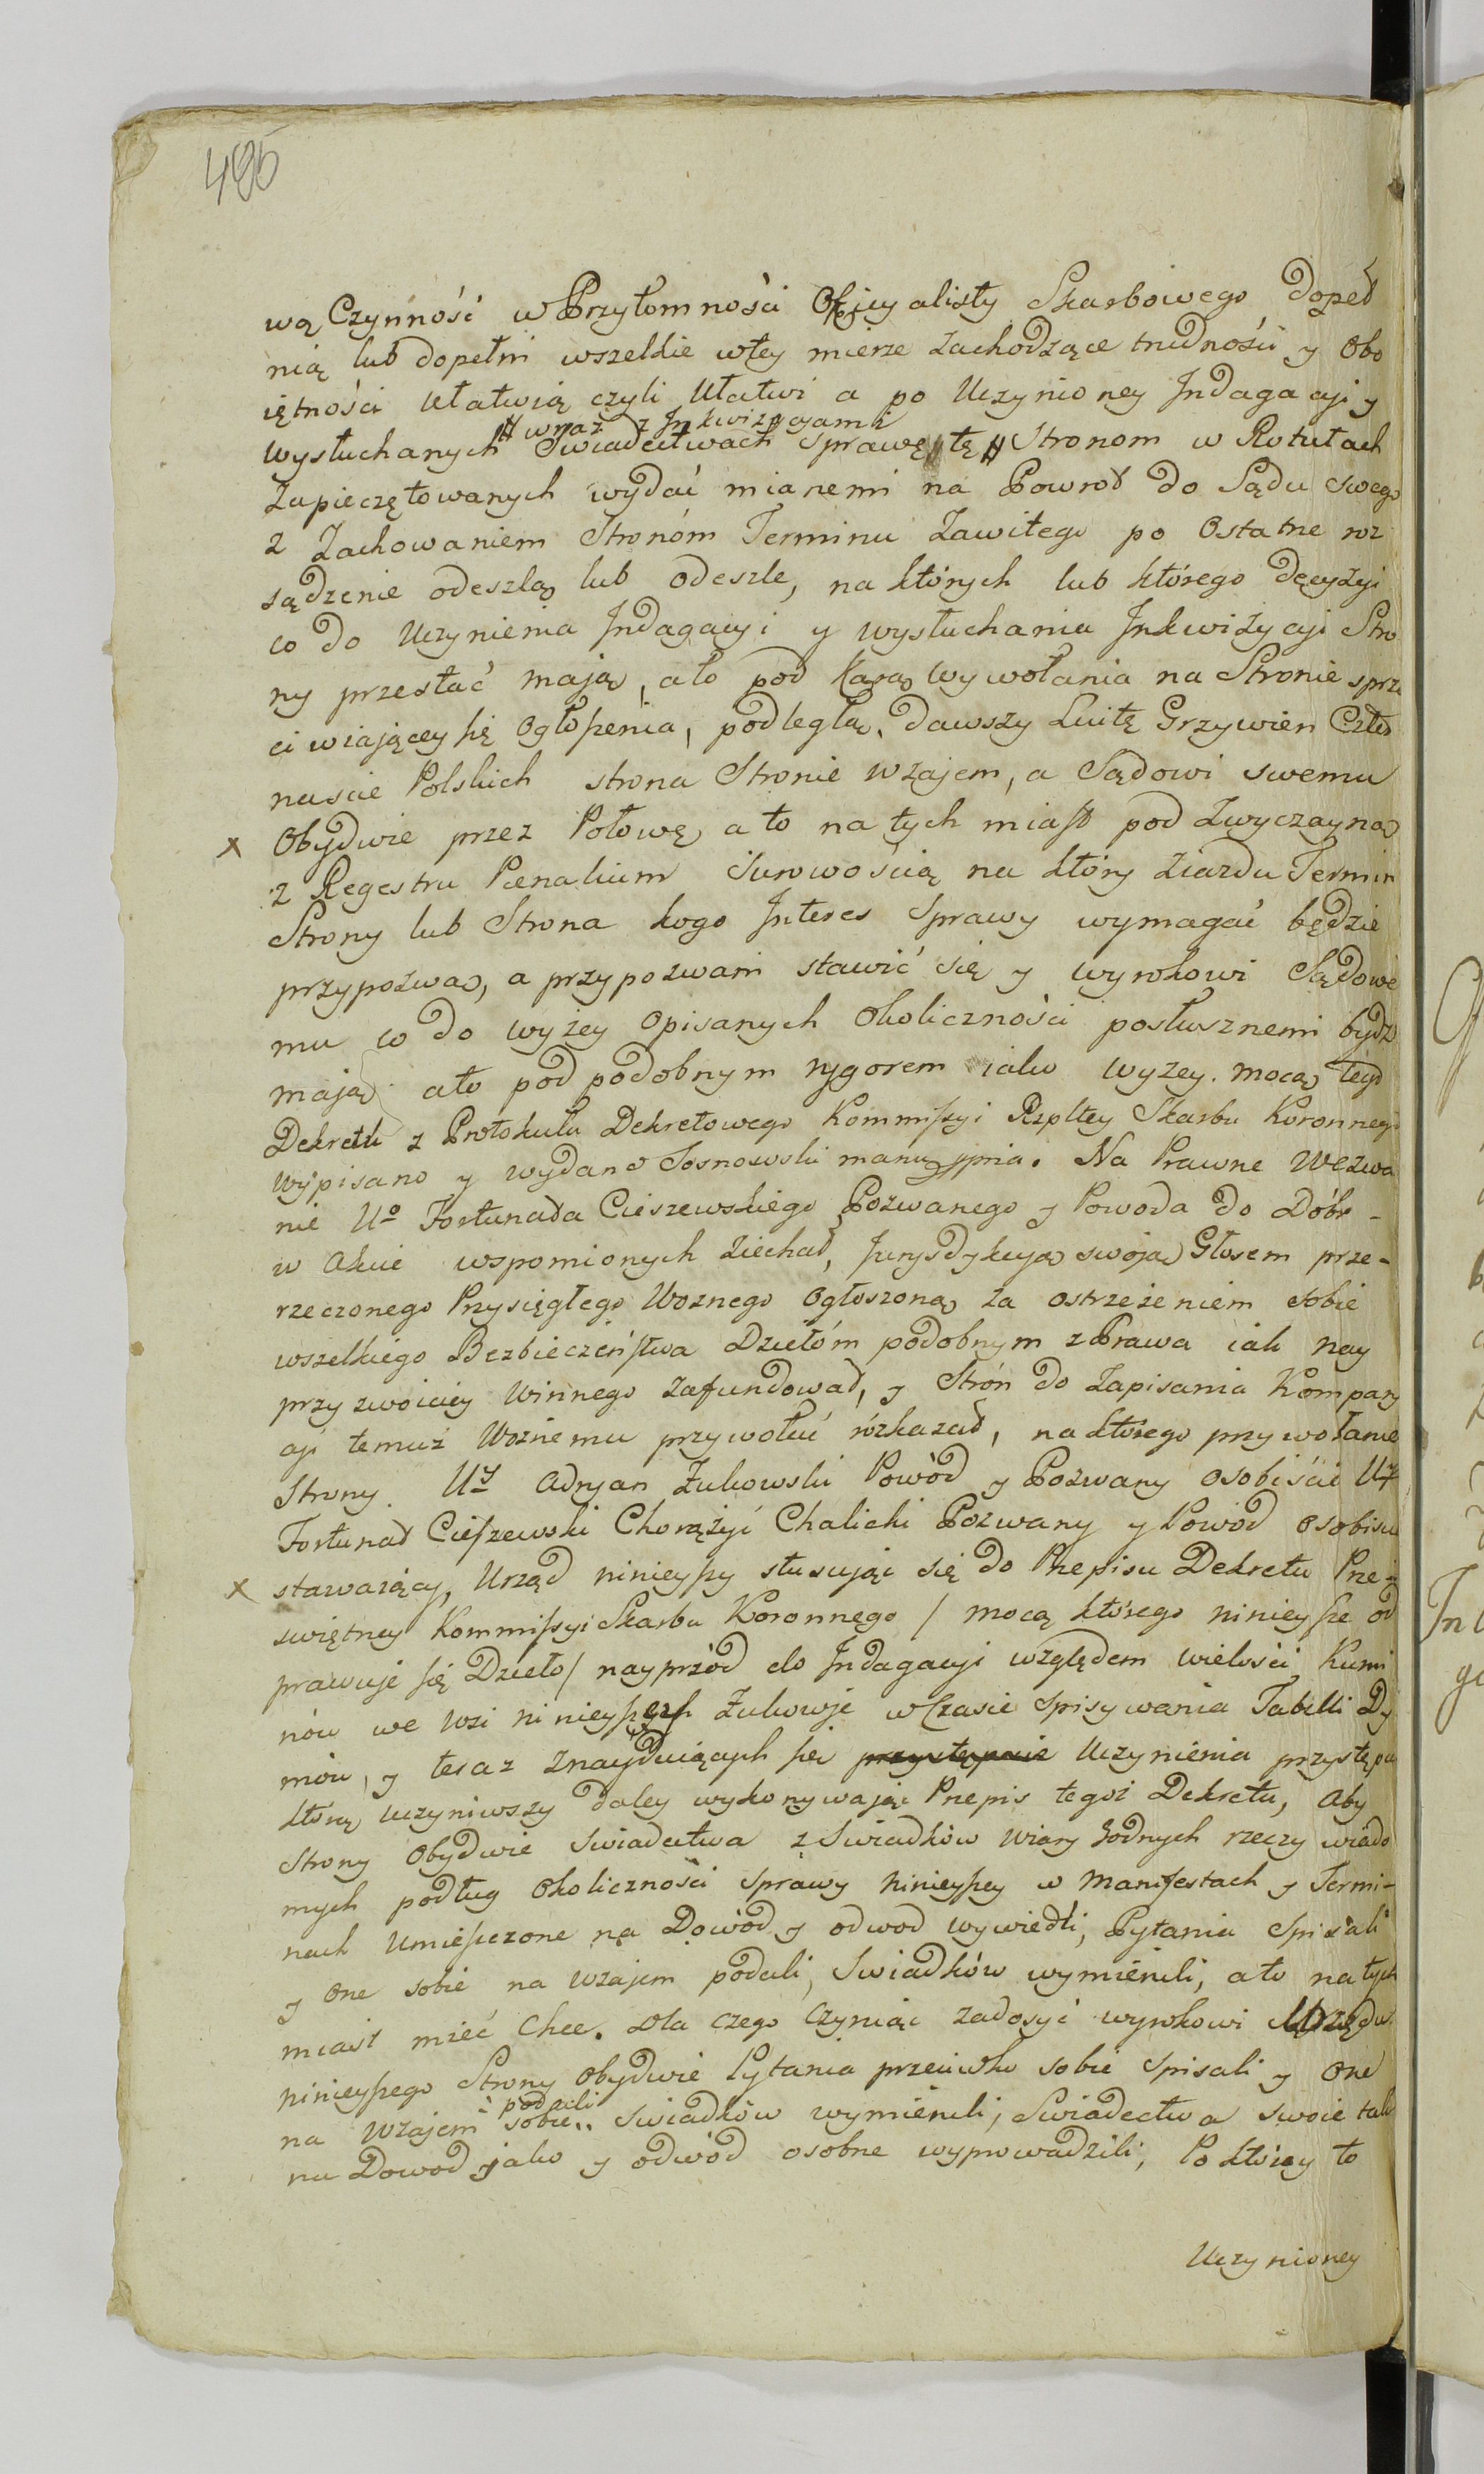 486
wą Czynność w Przytomności Oficyalisty Skarbowego dopeł
nią lub dopełni wszelkie w tey mierze zachodzące trudności y Obo
iętności Ułatwią czyli Ułatwi a po Uczynioney Indagacji y
# wraz z Inkwizycyami
wysłuchanych Swiadectwach sprawę tę # Stronom w Rotułach
Zapieczętowanych wydać mianemi na Powrot do Sądu swego
z Zachowaniem Stronóm Terminu Zawitego po Ostatne roz
sądzenie odeszlą lub odeszle, na których lub którego decyzyi
co do Uczynienia Indagacyi y wysłuchania Inkwizycji Stro
ny przestać mają, a to pod karą wywołania na Stronie sprze
ciwiającey się Ogłoszenia, podległą, dawszy Luitę Grzywien Czter
nascie Polskich strona Stronie wzajem, a Sądowi swemu
x Obydwie przez Połowę, a to natychmiast pod zwyczayną
z Regestru Pœnalium Surowością na który ziazdu Termin
Strony lub Strona kogo Interes Sprawy wymagać będzie
przypozwą, a przypozwani stawić się y wyrokowi Sądowe
mu co do wyżey Opisanych Okoliczności posłusznemi bydz
mają a to pod podobnym rygorem iako wyzey. mocą tego
Dekretu z Protokułu Dekretowego Kommissyi Rzpltey Skarbu Koronnego
wypisano y wydano Sosnowski manu ppria. Na Prawne Wezwa
nie Uo Fortunada Cieszewskiego Pozwanego y Powoda do Dóbr
w Akcie wspomionych ziechał, Jurysdykcyą swoją Głosem prze-
rzeczonego Przysięgłego Woznego Ogłoszoną za ostrzeżeniem sobie
wszelkiego Bezbieczeństwa Dziełóm podobnym z Prawa iak nay
przyzwoiciey Winnego zafundował, y Strón do Zapisania Kompary
cji temuż Woznemu przywołać rózkazał, na którego przywołanie
Strony. Uy Adryan Żukowski Powòd y Pozwany osobiście Uy
Fortunat Cieszewski Chorążyć Chalicki Pozwany y Powòd osobiscie
x stawaiący, Urząd ninieyszy stusując się do Przepisu Dekretu Prze-
swiętney Kommissyi Skarbu Koronnego / mocą którego ninieysze od
prawuje się Dzieło / nayprzód do Indagacyi względem wielości Kumi
nów we wsi ninieyszey Żukowje w Czasie Spisywania Tabelli Dy
mów, y teraz znayduiących się przystępuie Uczynienia przystępu
którą uczyniwszy daley wykonywając Przepis tegoż Dekretu, Aby
Strony Obydwie Swiadectwa z Swiadków Wiary Godnych rzeczy wiado
mych podług Okoliczności Sprawy Ninieyszey w Manifestach y Termi-
nach Umieszczone na Dowòd y odwod wywiedli, Pytania Spisali
y One sobie na wzajem podali, Swiadków wymienili, a to natych
miast mieć Chce. Dla czego Czyniąc zadosyć wyrokowi Urzędu
ninieyszego Strony Obydwie Pytania przeciwko sobie Spisali y One
podali
na Wzajem sobie.. Swiadków wymienili, Swiadectwa swoie tak
na Dowod jako y odwòd osobne wyprowadzili, Po którey to
Uczynioney